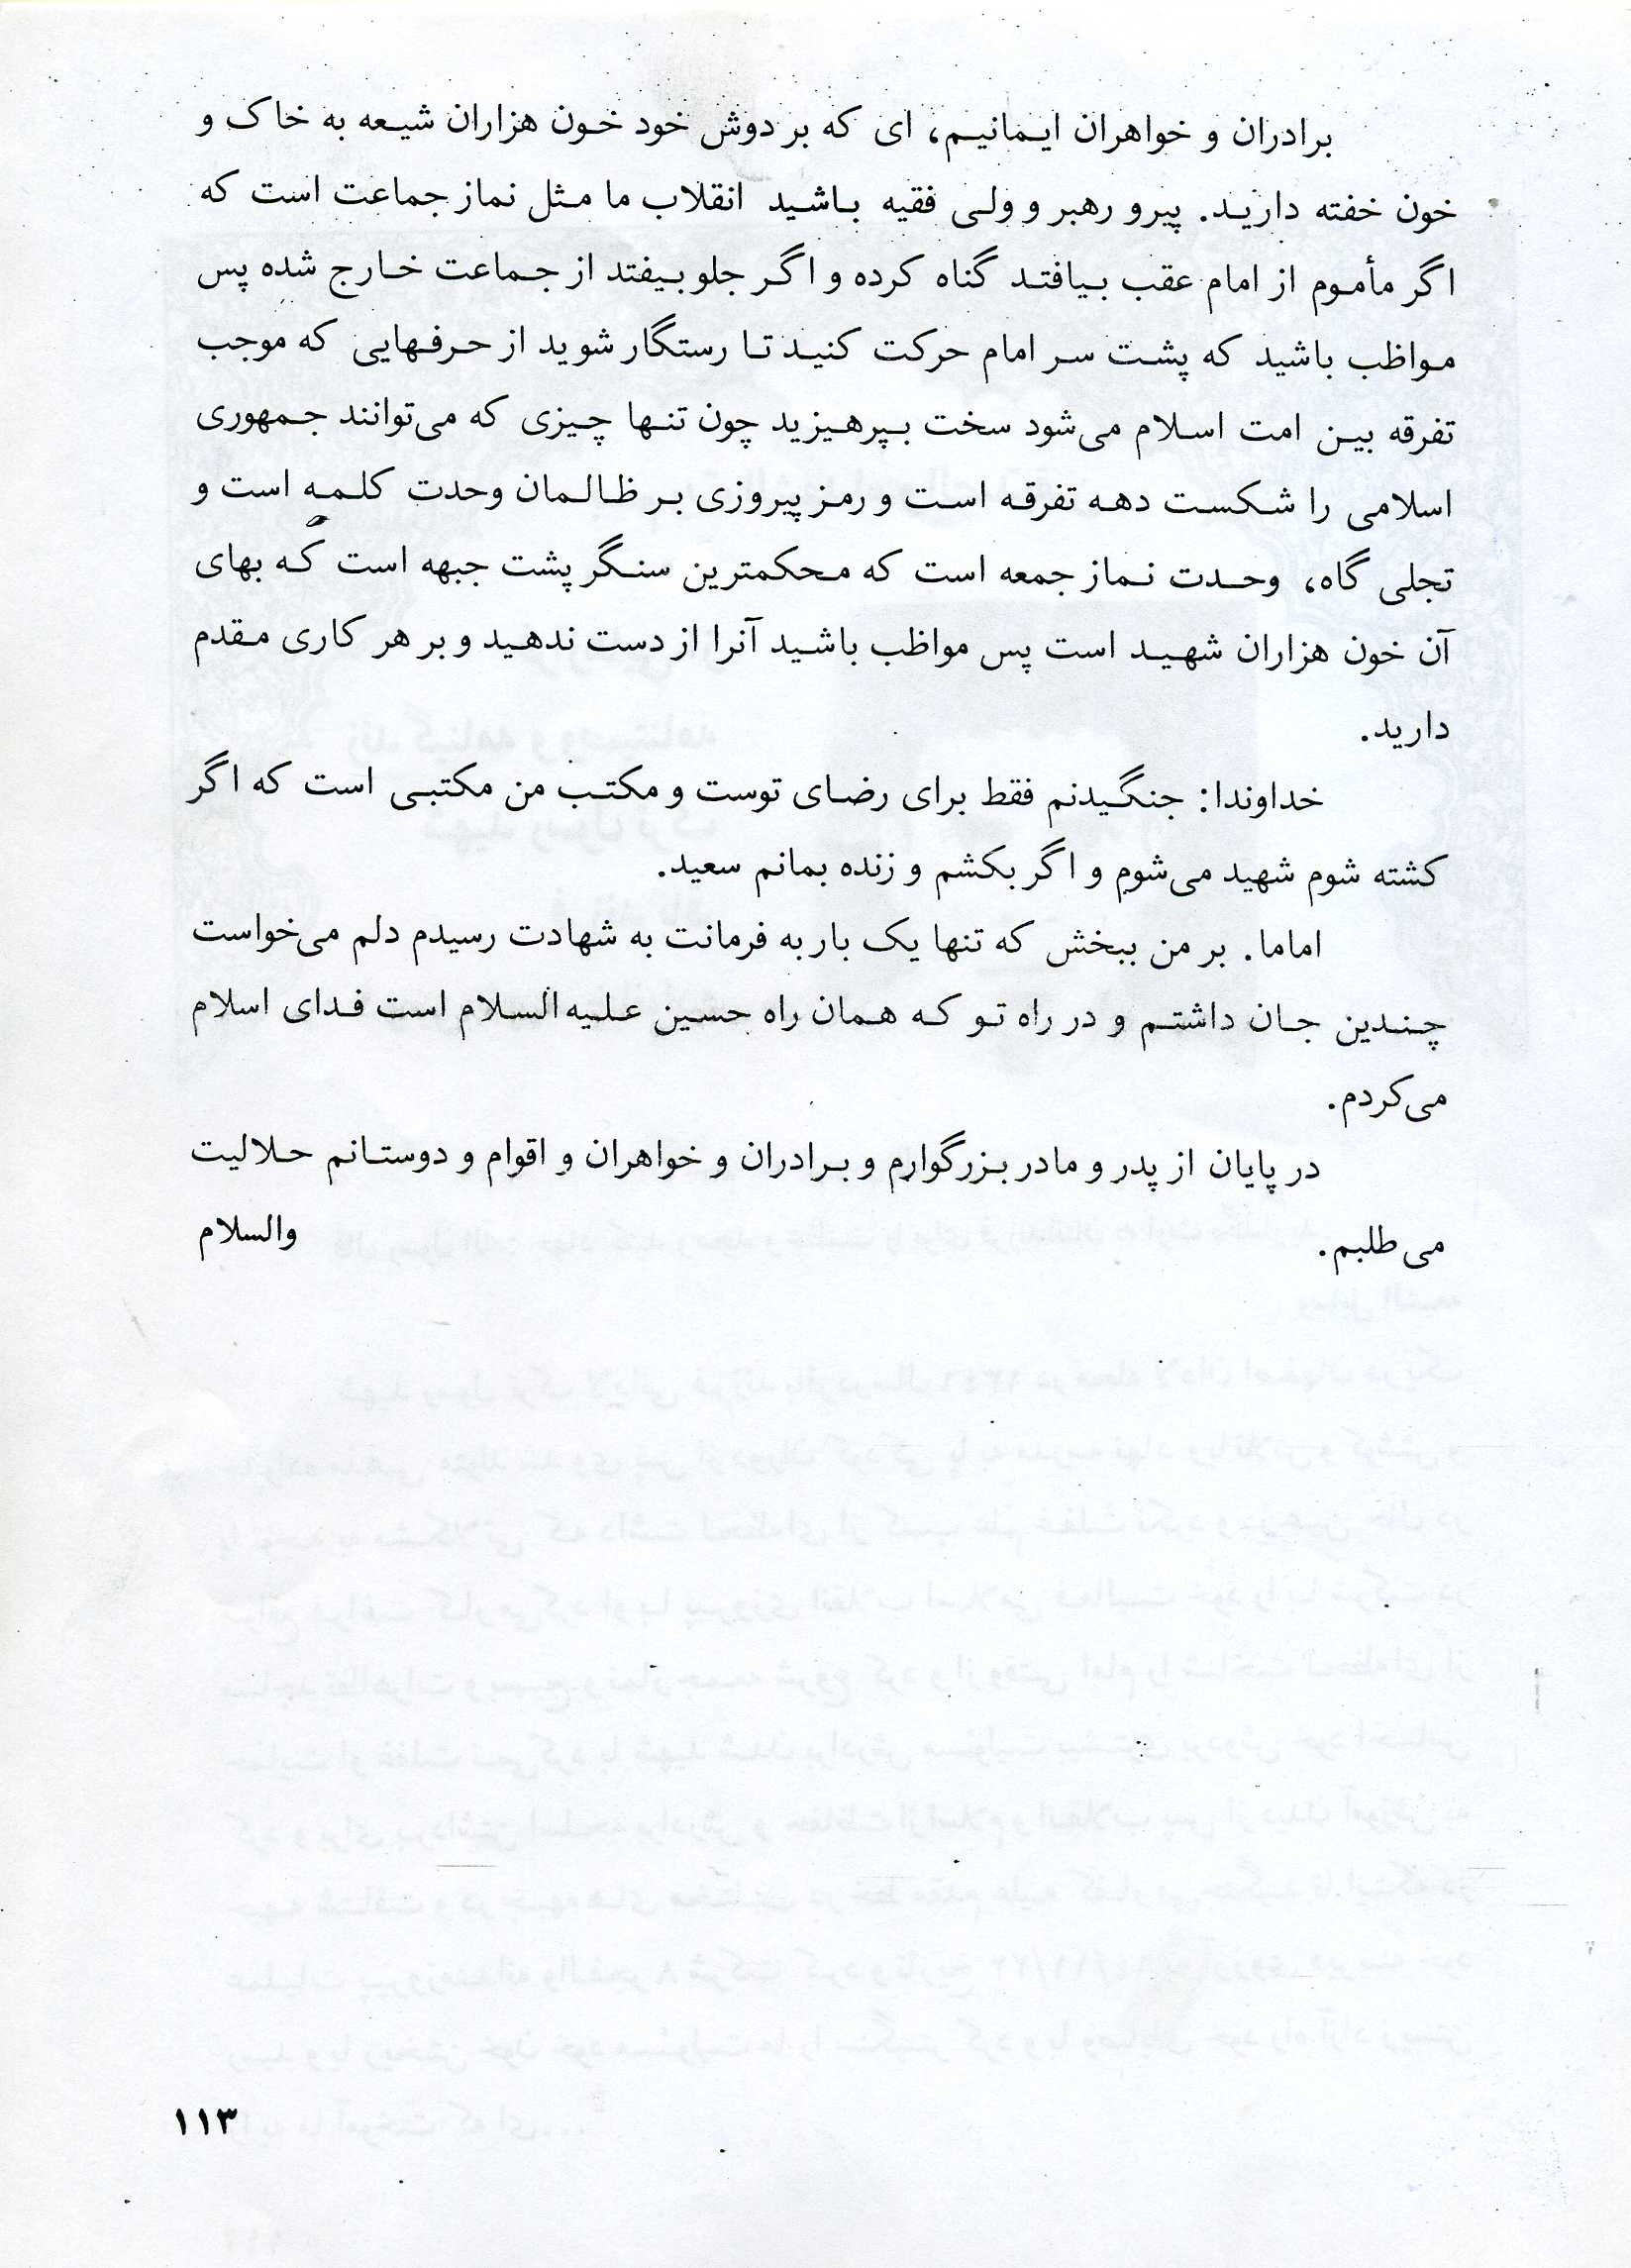 برادران و خواهران ایمانیم، ای که بر دوش خود خون هزاران شیعه به خاک و
خون خفته دارید. پیرو رهبر و ولی فقیه باشید انقلاب ما مثل نماز جماعت است که
اگر مأموم از امام عقب بیافتد گناه کرده و اگر جلو بیفتد از جماعت خارج شده پس
مواظب باشید که پشت سر امام حرکت کنید تا رستگار شوید از حرفهایی که موجب
تفرقه بین امت اسلام می‌شود سخت بپرهیزید چون تنها چیزی که می‌توانند جمهوری
اسلامی را شکست دهه تفرقه است و رمز پیروزی بر ظالمان وحدت کلمه است و
تجلی گاه، وحدت نماز جمعه است که محکمترین سنگر پشت جبهه است که بهای
آن خون هزاران شهید است پس مواظب باشید آنرا از دست ندهید و بر هر کاری مقدم
دارید.
خداوندا: جنگیدنم فقط برای رضای توست و مکتب من مکتبی است که اگر
کشته شوم شهید می‌شوم و اگر بکشم و زنده بمانم سعید.
اماما. بر من ببخش که تنها یک بار به فرمانت به شهادت رسیدم دلم می‌خواست
چندین جان داشتم و در راه تو که همان راه حسین علیه‌السلام است فدای اسلام
می‌کردم.
در پایان از پدر و مادر بزرگوارم و برادران و خواهران و اقوام و دوستانم حلالیت
می‌طلبم. والسلام
۱۱۳